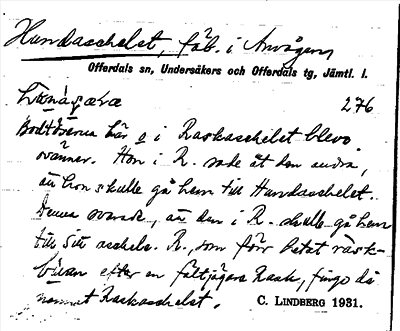 Hundaschelet, fäb. i Änvågen
Offerdals sn, Undersåkers och Offerdals tg, Jämtl. l.
276
Bodtöserna här o i Raskaschelet blevo
ovänner. Hon i R. sade åt den andra,
att hon skulle gå hem till Hundaschelet.
Denna svarade, att den i R. skulle gå hem
till sitt aschele. R., som förr hetat
efter en fältjägare Rask, fingo då
namnet Raskaschelet.
C. LINDBERG 1931.